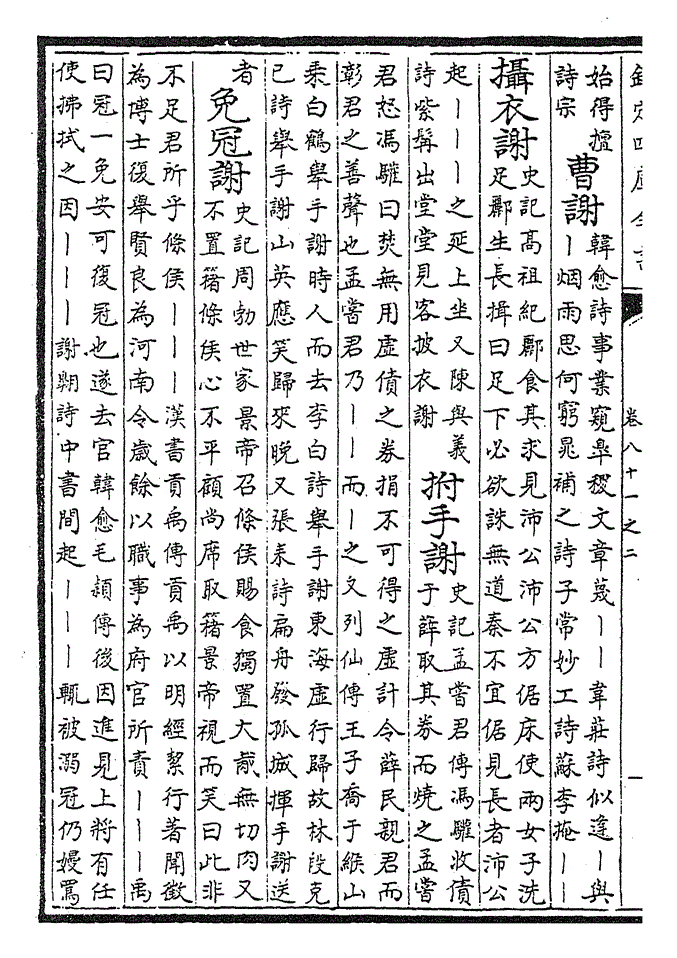 欽定四庫全書
卷八十一之二
一
始得擅
詩宗
曹謝
韓愈詩事業窺臯稷文章蔑丨丨韋莊詩似逢丨與
丨烟雨思何窮晁補之詩子常妙工詩蘇李掩丨丨
攝衣謝
史記髙祖紀酈食其求見沛公沛公方倨床使兩女子洗
足酈生長揖曰足下必欲誅無道秦不宜倨見長者沛公
起丨丨丨之延上坐又陳與義
詩紫髯出堂堂見客披衣謝
拊手謝
史記孟嘗君傳馮驩收債
于薛取其券而燒之孟嘗
君怒馮驩曰焚無用虛債之券捐不可得之虛計令薛民親君而
彰君之善聲也孟嘗君乃丨丨而丨之又列仙傳王子喬于緱山
乘白鶴舉手謝時人而去李白詩舉手謝東海虛行歸故林段克
已詩舉手謝山英應笑歸來晚又張耒詩扁舟發孤城揮手謝送
者
免冠謝
史記周勃世家景帝召條侯賜食獨置大胾無切肉又
不置籍條侯心不平顧尚席取籍景帝視而笑曰此非
不足君所乎條侯丨丨丨漢書貢禹傳貢禹以明經絜行著聞徵
為博士復舉賢良為河南令歲餘以職事為府官所責丨丨丨禹
曰冠一免安可復冠也遂去官韓愈毛頴傳後因進見上將有任
使拂拭之因丨丨丨謝翺詩中書間起丨丨丨輒被溺冠仍嫚罵